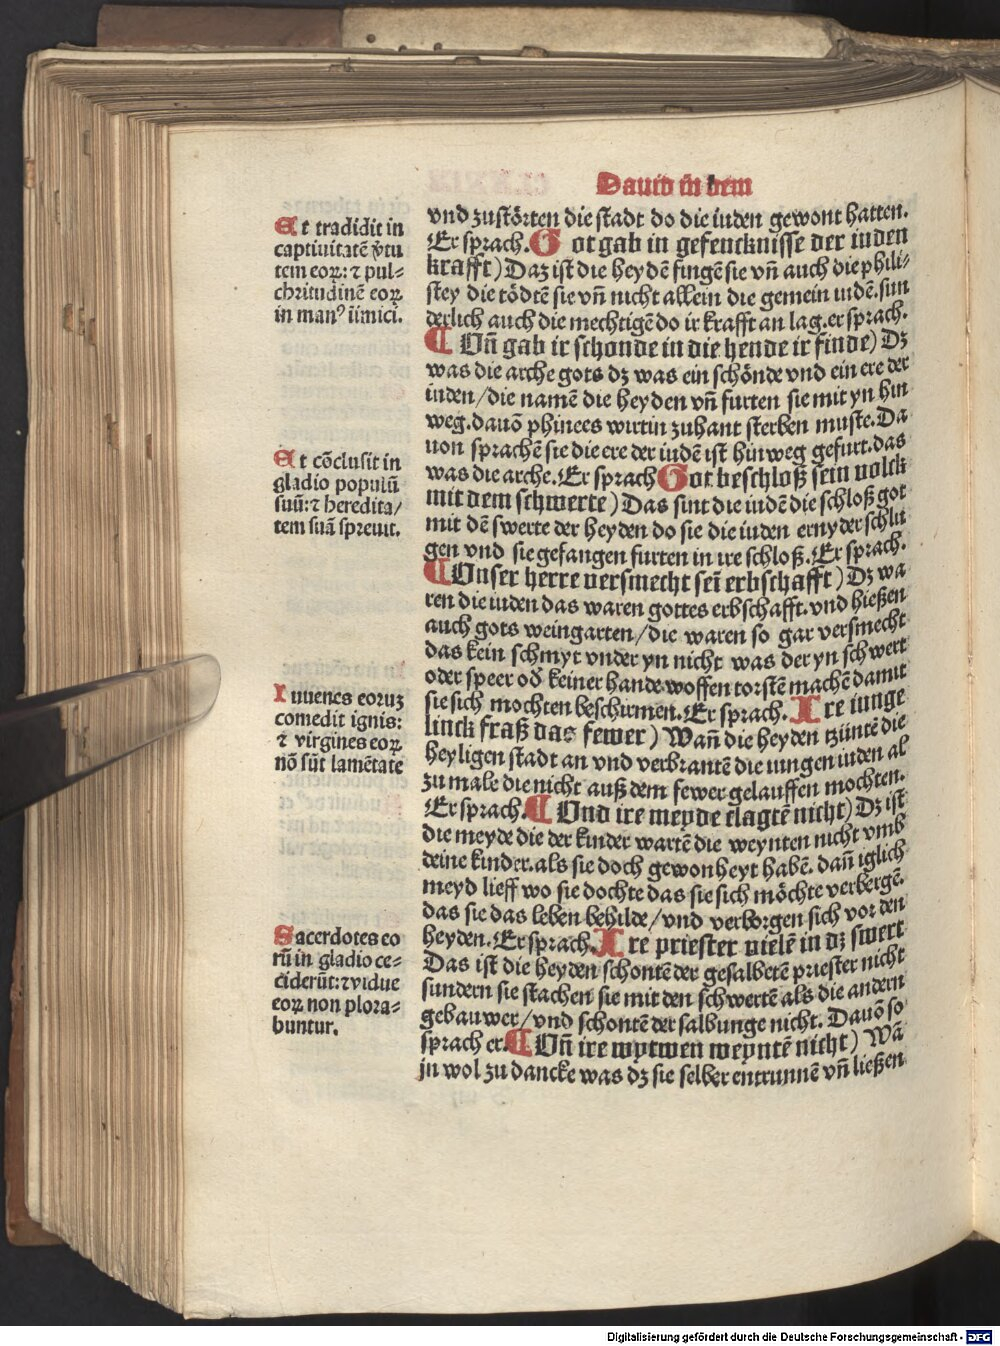 Dauid in dem
Et tradidit in
captiuitatē v̓tu
tem eoꝝ: ⁊ pul⸗
chritudinē eoꝝ
in manꝰ iimici.
Et cōclusit in
gladio populū
suū:⁊ heredita/
tem suā spreuit.
Iuuenes eoruꝫ
comedit ignis:
⁊ virgines eoꝝ
nō sūt lamētate
Sacerdotes eo
rū in gladio ce⸗
ciderūt:⁊vidue
eoꝝ non plora⸗
buntur.
vnd zustörten die stadt do die iuden gewont hatten.
Er sprach. Got gab in gefencknisse der iuden
krafft) Daz ist die heydē fingē sie vñ auch die phili⸗
stey die tödtē sie vñ nicht allein die gemein iudē.sun
derlich auch die mechtigē do ir krafft an lag.er sprach.
Vñ gab ir schonde in die hende ir finde) Dz
was die arche gots dz was ein schönde vnd ein ere der
iuden/die namē die heyden vñ furten sie mit yn hin
weg.dauō phinees wirtin zuhant sterben muste.Da
uon sprachē sie die ere der iudē ist hin weg gefurt.das
was die arche.Er sprach Got beschloß sein volck
mit dem schwerte) Das sint die iudē die schloß got
mit dē swerte der heyden do sie die iuden ernyder schlu
gen vnd sie gefangen furten in ire schloß.Er sprach.
Vnser herre versmecht sei erbschafft) Dz wa
ren die iuden das waren gottes erbschafft.vnd hießen
auch gots weingarten/die waren so gar versmecht
das kein schmyt vnder yn nicht was der yn schwert
oder speer od̓ keiner hande woffen torstē machē damit
sie sich mochten beschirmen.Er sprach. Ire iunge
linck fraß das fewer) Wañ die heyden tzüntē die
heyligen stadt an vnd verbrantē die iungen iuden al
zu male die nicht auß dem fewer gelauffen mochten.
Er sprach. Vnd ire meyde clagtē nicht) Dz ist
die meyde die der kinder wartē die weynten nicht vmb
deine kinder.als sie doch gewonheyt habē. dañ iglich
meyd lieff wo sie dochte das sie sich möchte verbergē.
das sie das leben behilde/vnd verborgen sich vor den
heyden.Er sprach. Ire priester vielē in dz swert
Das ist die heyden schontē der gesalbetē priester nicht
sundern sie stachen sie mit den schwertē als die andern
gebauwer/vnd schontē der salbunge nicht. Dauō so
sprach er. Vñ ire wytwen weyntē nicht) Wā
jn wol zu dancke was dz sie selber entrunnē vñ ließen
Digitalisierung gefördert durch die Deutsche Forschungsgemeinschaft - DFG